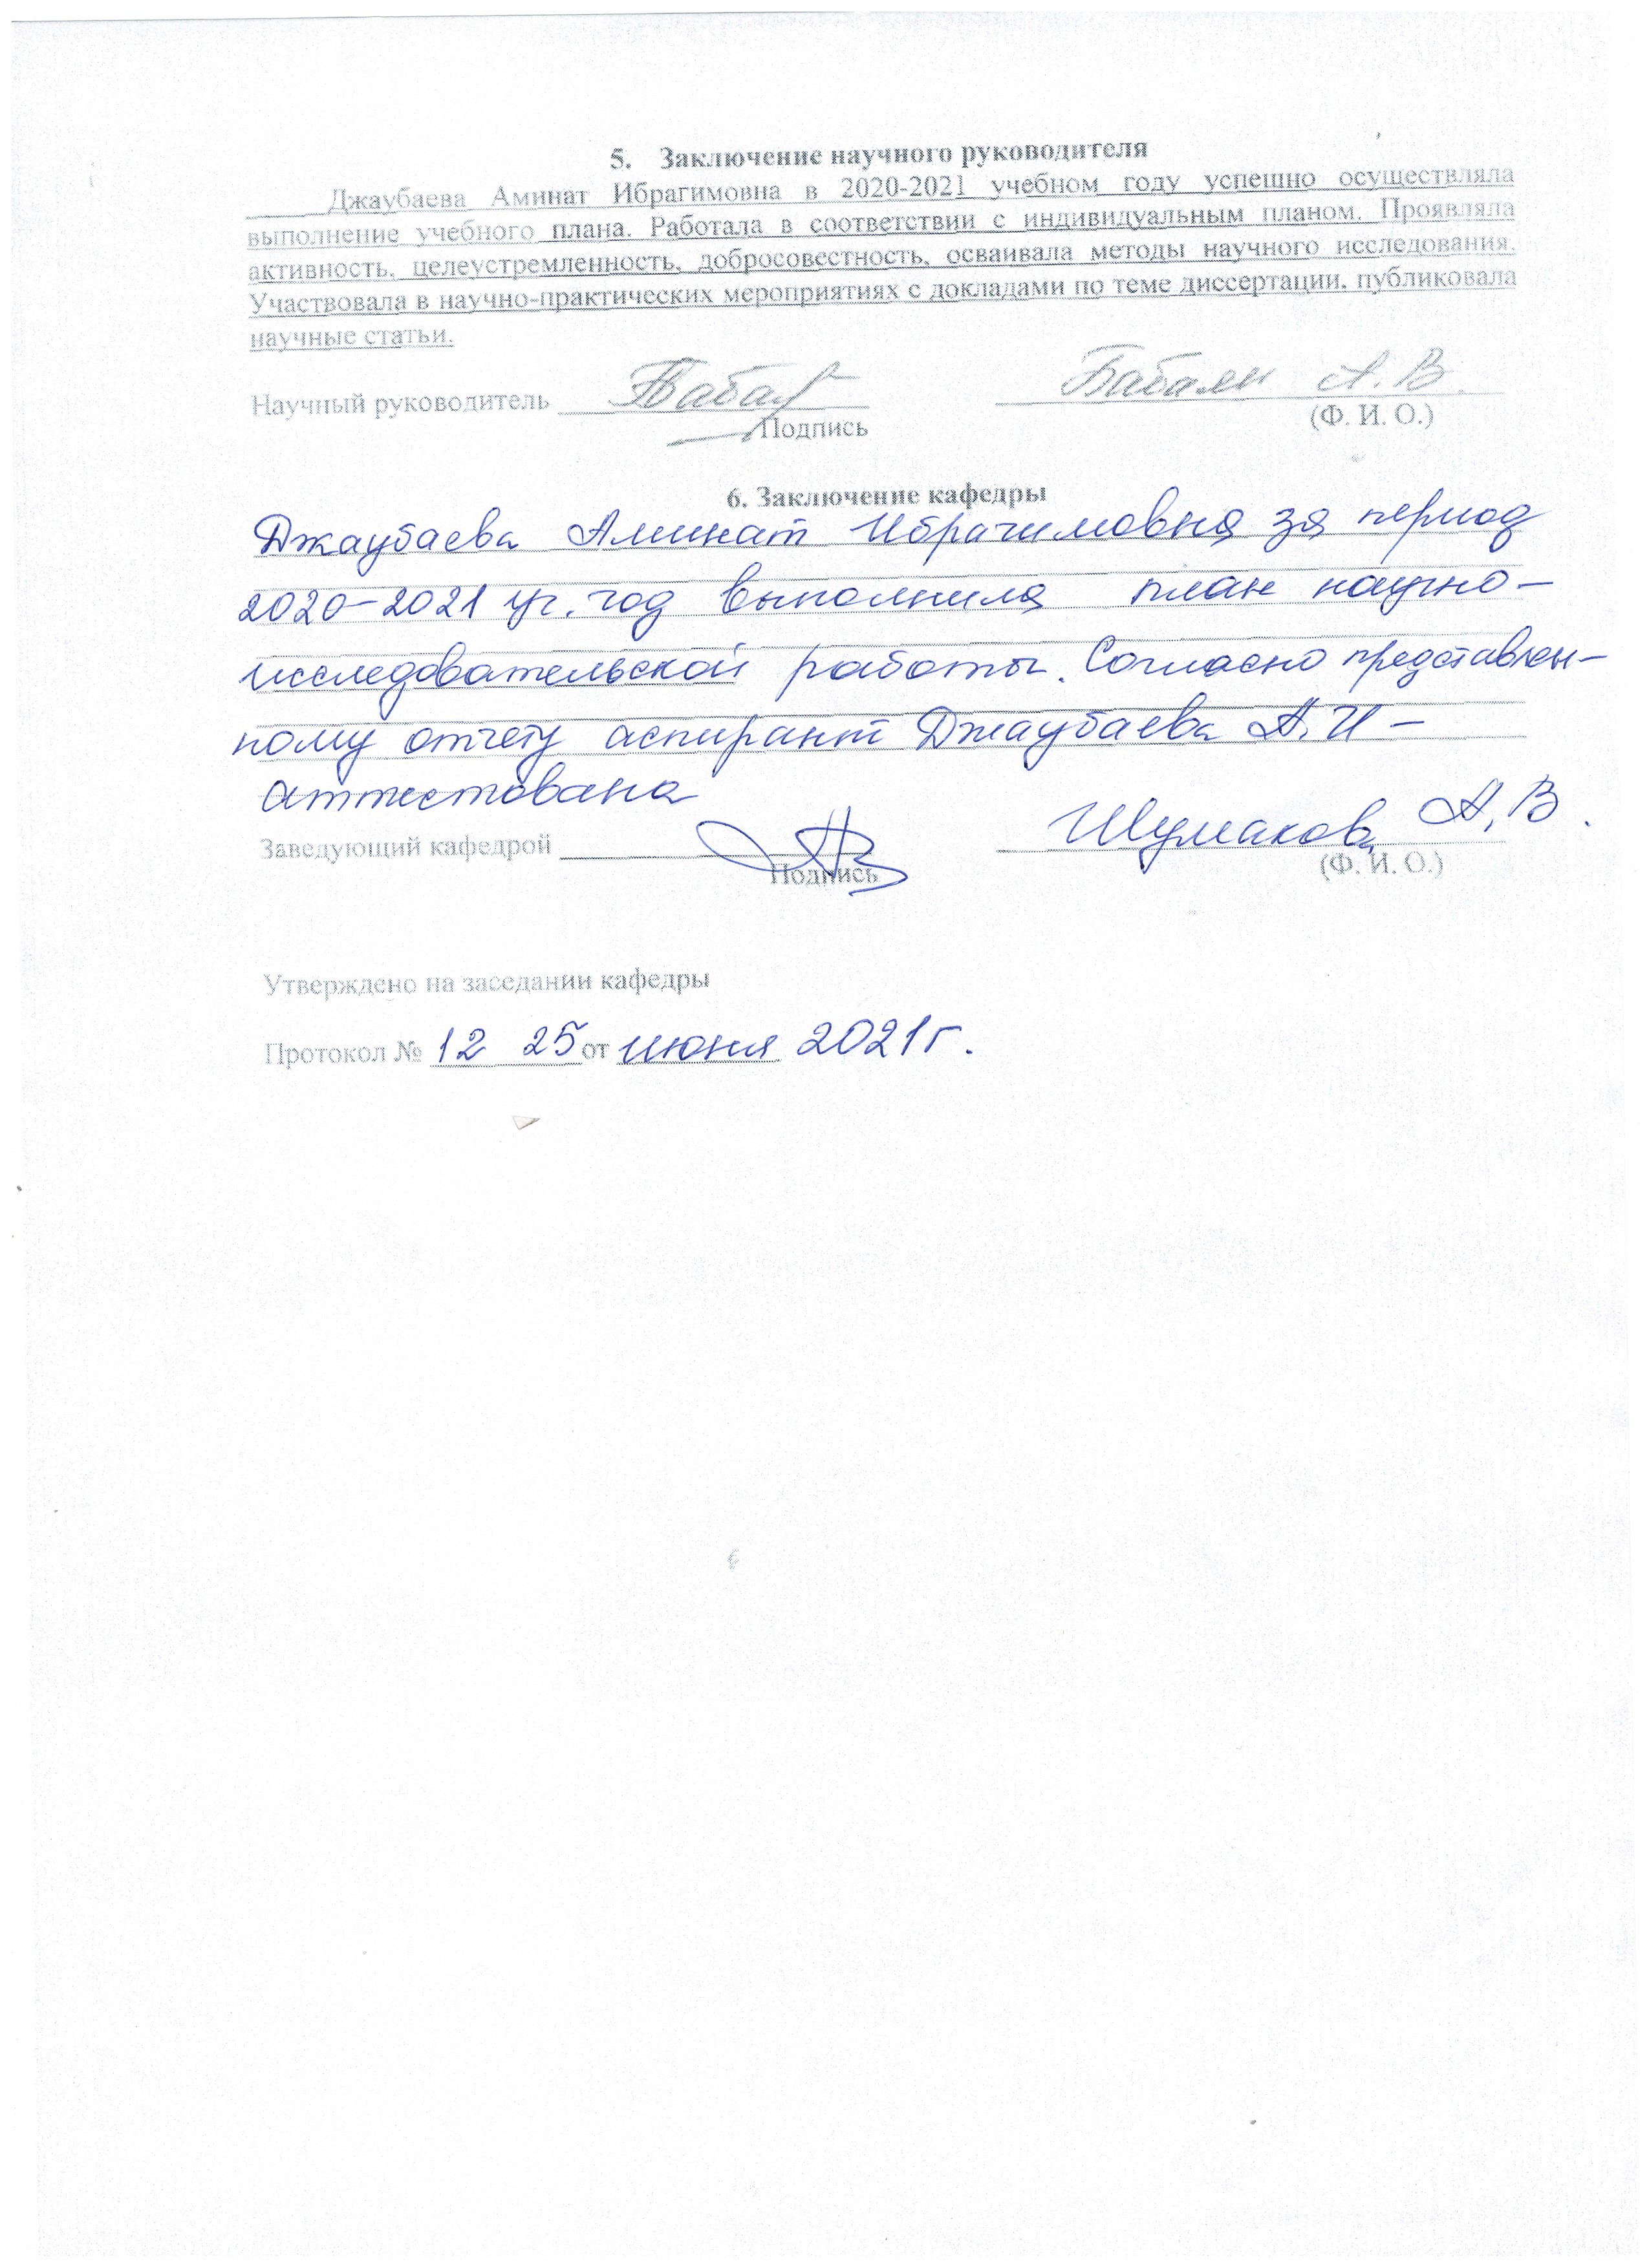 5. Заключение научного руководителя
Джаубаева Аминат Ибрагимовна в 2020-2021 учебном году успешно осуществляла
выполнение учебного плана. Работала в соответствии с индивидуальным планом. Проявляла
активность, целеустремленность, добросовестность, осваивала методы научного исследования.
Участвовала в научно-практических мероприятиях с докладами по теме диссертации, публиковала
научные статьи.
Научный руководитель Бабаян А. В.
Подпись (Ф. И. О.)
6. Заключение кафедры
Джаубаева Аминат Ибрагимовна за период
2020-2021 уч. год выполнила план научно-
исследовательской работы. Согласно представлен-
ному отчету аспирант Джаубаева А. И -
аттестована
Заведующий кафедрой Шумакова А. В.
Подпись (Ф. И. О.)
Утверждено на заседании кафедры
Протокол № 12 25 от июня 2021 г.